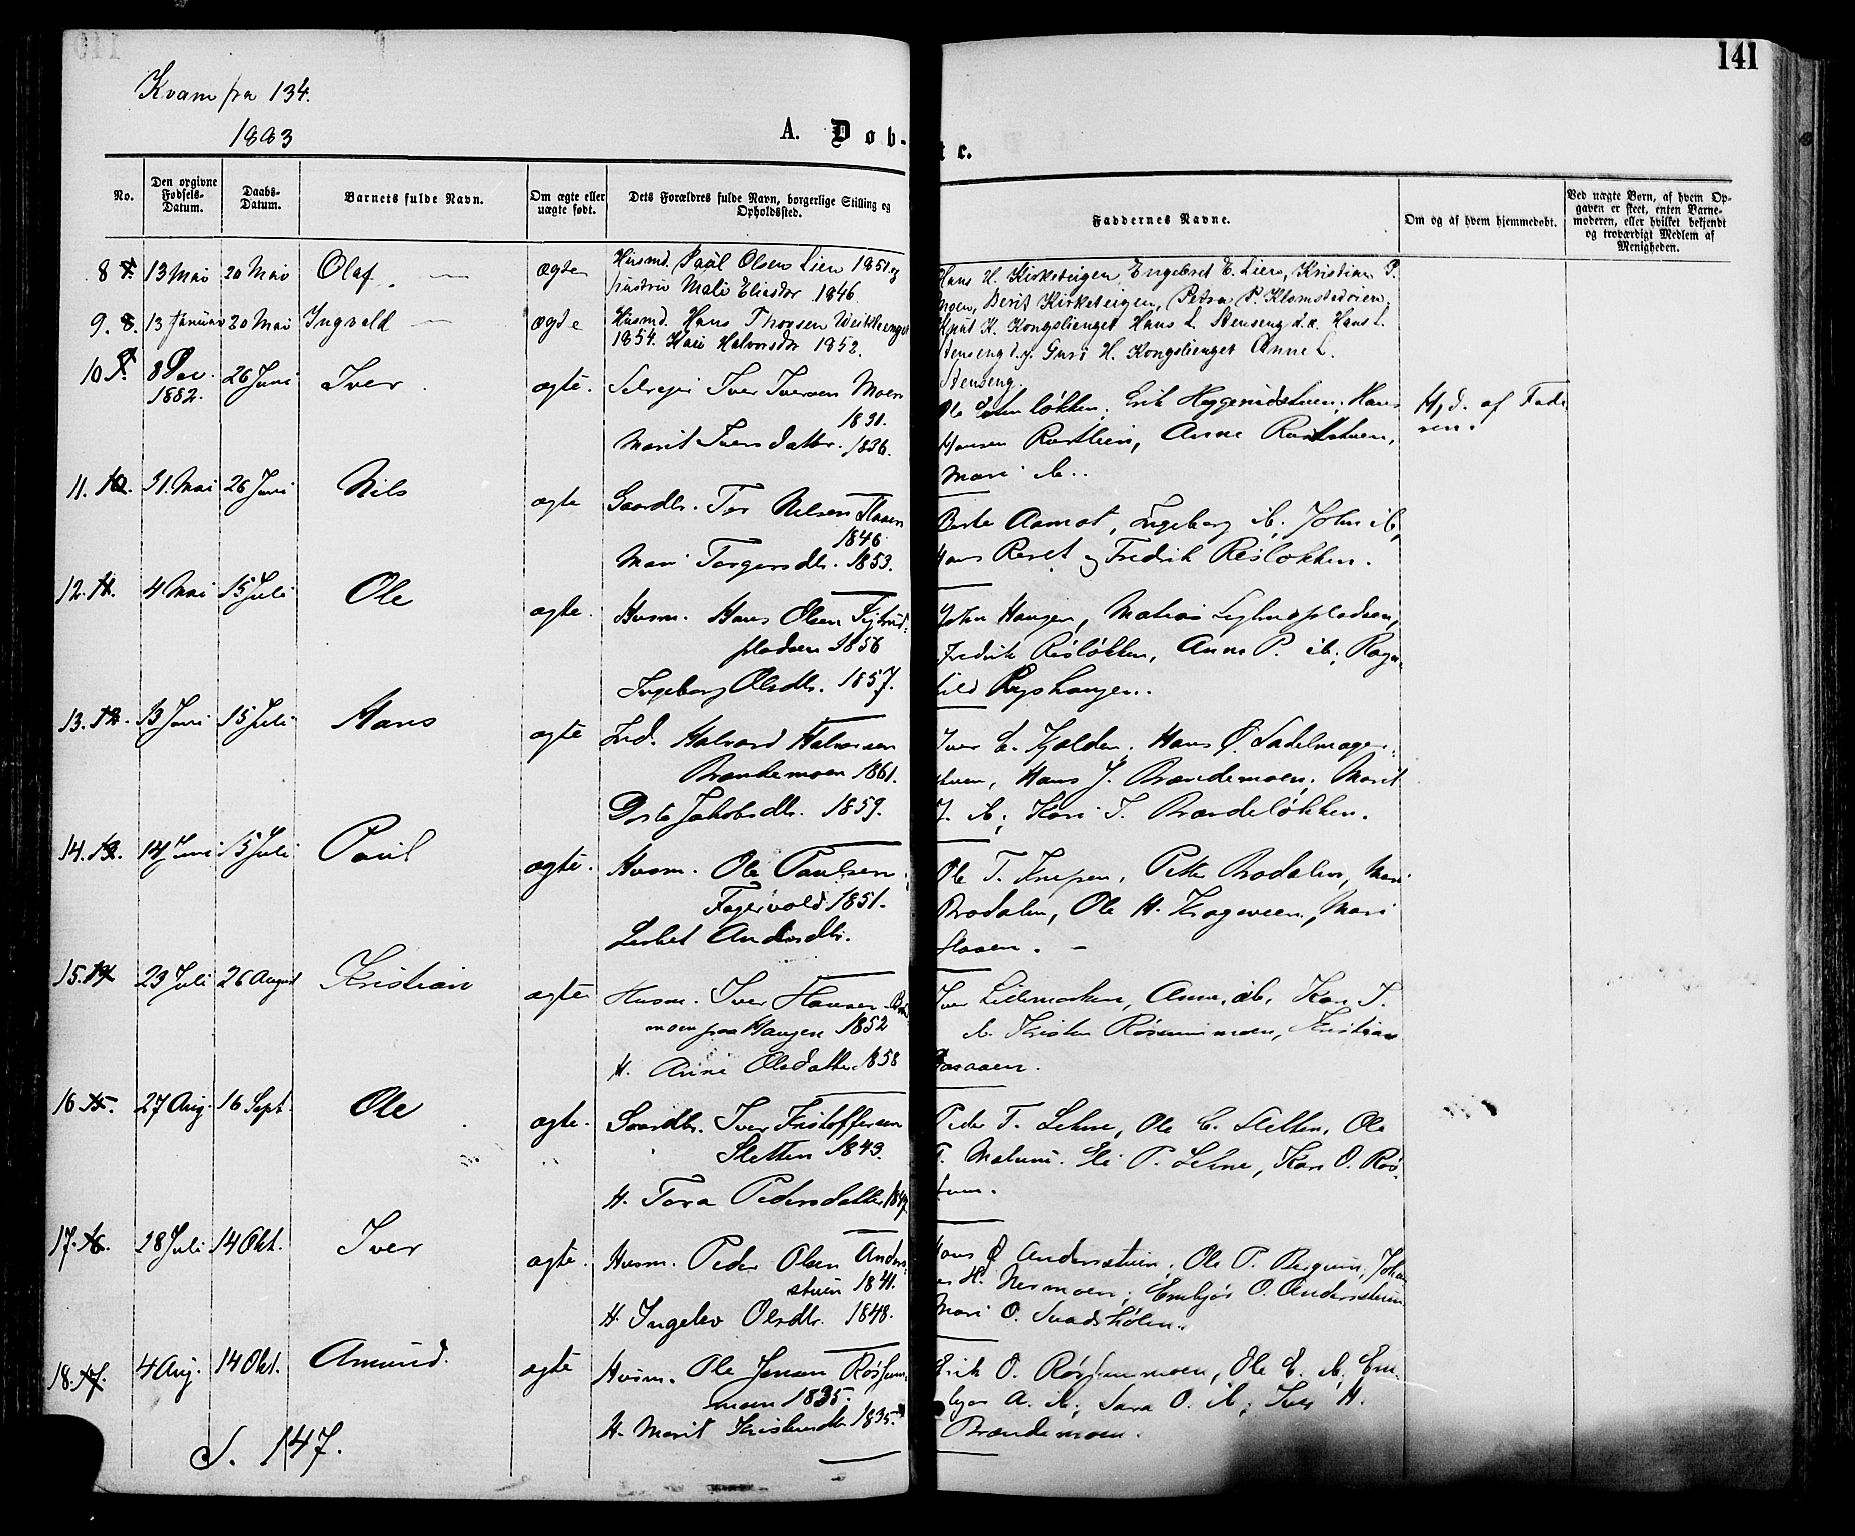 141
Kvam fra 134.
1883
A. Døb-
te.
No.
Den opgivne Fødsels-Datum.
Daabs-Datum.
Barnets fulde Navn.
Om ægte eller uægte født.
Dets Forældres fulde Navn, borgerlige Stilling og Opholdssted.
Faddernes Navne.
Om og af hvem hjemmedøbt.
Ved uægte Børn, af hvem Opgaven er skeet, enten Barnemoderen, eller hvilket bekjendt og troværdigt Medlem af Menigheden.
8 13 Mai 20 Mai Olaf ægte
Husmd. Paul Olsen Lien 1851 og
hustru Mali Eliasdtr 1846.
Hans H. Kirksteigen, Engebret E. Lien, Kristian P.
moen, Berit Kirketeigen, Petra P. Klomstadøien.
9. 8. 13 Januar 20 Mai Ingvald ægte
Husmd. Hans Thorsen
1854. Kari Halvorsdtr 1852.
Knut K. Kongslienget Hans L. Stenseng d.æ. Hans L.
Stenseng d.y. Guri H. Kongslienget Anne L.
Stenseng.
10 9. 8 Dec. 1882. 26 Juni Iver ægte.
Selvejer Iver Iversen Moen
1831.
Marit Iversdatter. 1836.
Ole løkken, Erik Heggerudstuen, Hans
Hansen Rustlien, Anne Ruststuen,
Mari ib..
Hjd. af Fade
ren.
11. 10. 31. Mai 26 Juni Nils ægte
Gaardbr. Tor Nilsen Flaaen
1846
Mari Torgersdtr. 1853.
Berte Aamot, Ingeborg ib, John ib,
Hans Reret og Fredrik Risløkken.
12. 11. 4 Mai 15 Juli Ole ægte.
Husm. Hans Olsen
pladsen 1856
Ingeborg Olsdtr. 1857.
John Haugen, Matias pladsen,
Fredrik Risløkken, Anne P. ib, Ragn-
hild haugen.
13. 12. 13 Juni 15 Juli Hans ægte
Ind. Halvard Halvorsen
Brandemoen 1861.
Dorte Jakobsdtr. 1859.
Iver E. Kjølden, Hans Ø. Sadelmager-
stuen, Hans J. Brændemoen, Marit
J. ib, Kari T. Brændeløkken.
14. 13. 14 Juni 15 Juli Paul ægte.
Husm. Ole Paulsen
Fagervold 1851.
Lisbet Andersdtr.
Ole T. Knipen, Petter Brodalen, Mari
Brodalen, Ole H. Krageveen, Mari
Flaaen. –
15. 14 23 Juli 26 August Kristian ægte
Husm. Iver Hansen
moen paa Haugen 1852
H. Anne Olsdatter 1858
Iver Lillemarken, Anne ib, Kari T.
ib. Kristen Røssummoen, Kristian
16 15. 27 Aug. 16 Sept. Ole ægte.
Gaardbr. Iver Kristoffersen
Sletten 1843.
H. Tora Pedersdatter
Peder T. Lehne, Ole C. Sletten, Ole
T. Melum. Eli P. Lehne, Kari O. Røs-
sum.
17. 16. 28 Juli 14 Okt. Iver ægte.
Husm. Peder Olsen Anders-
stuen 1841.
H. Ingelev Olsdtr. 1848.
Hans Ø Andersstuen, Ole P. Bergum, Johan
es H. Nermoen, Embjør O. Andersstuen
Mari O. Svadshølen.
18. 17. 4 Aug. 14 Okt. Amund. ægte
Husm. Ole Jensen Røssum-
moen 1835.
H. Marit 1835
Erik O. Røssummoen, Ole E. ib, Em-
bjør A. ib, Sara O. ib, Iver H.
Brændemoen.
S. 147.